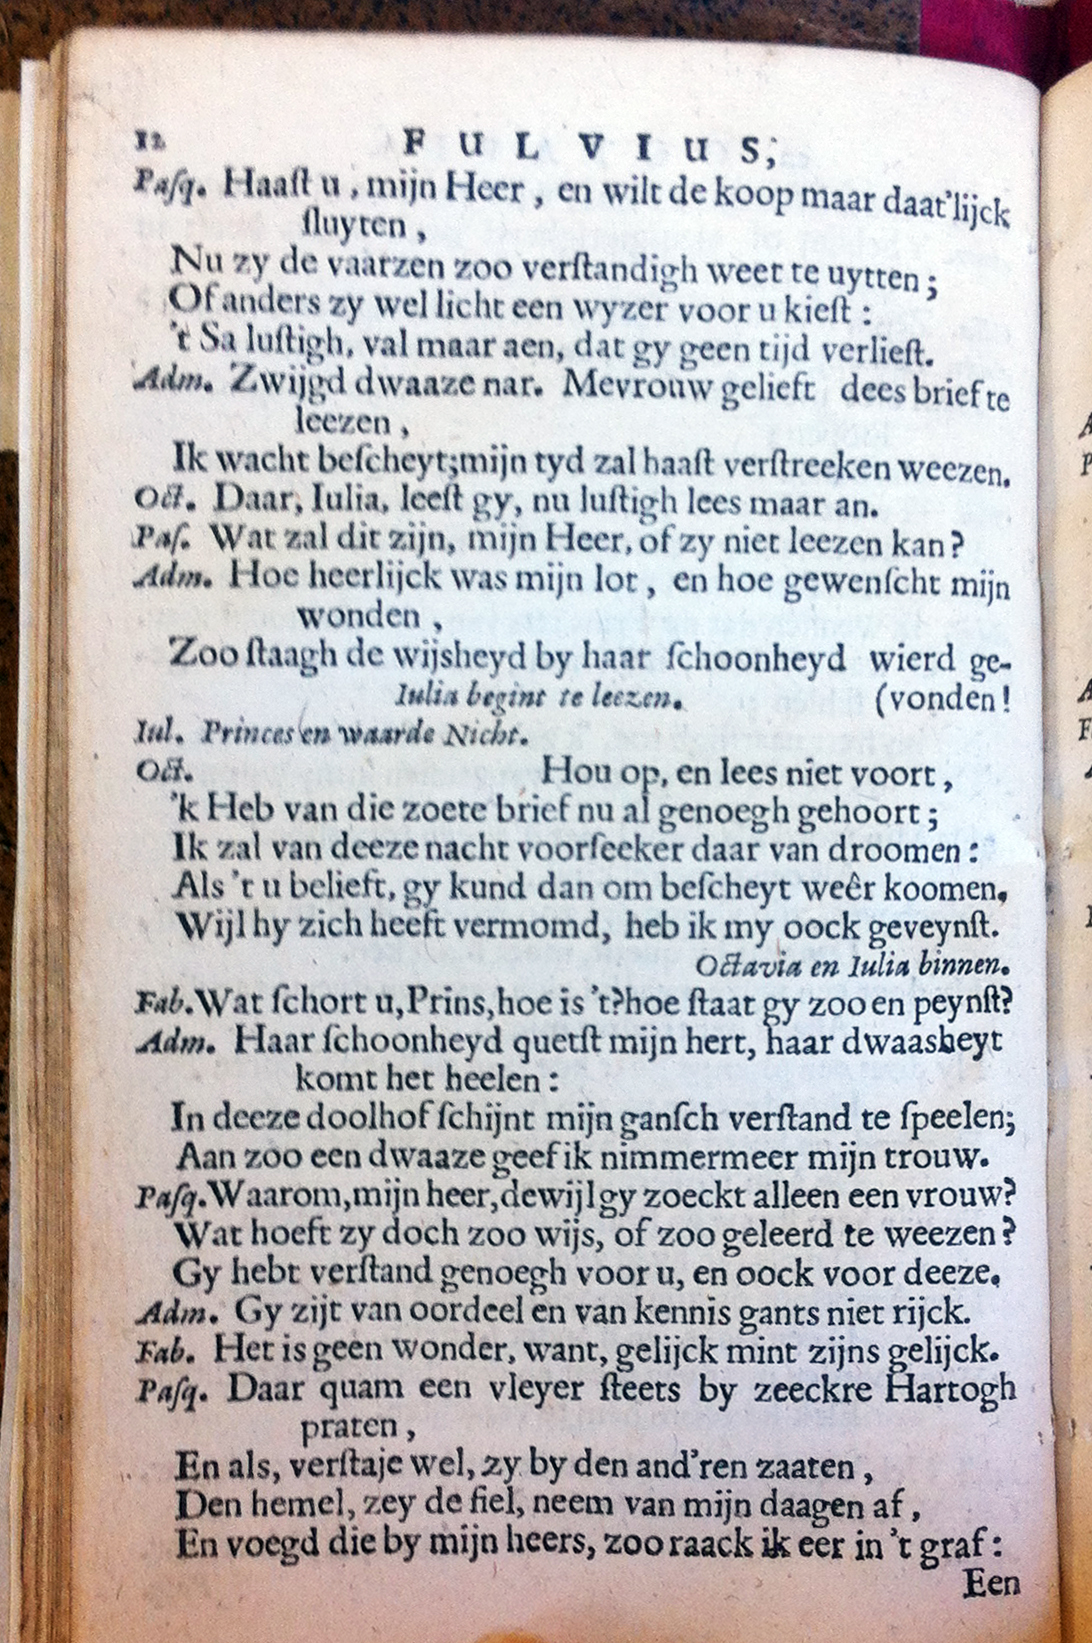 12 FULVIUS,
Paſq. Haaſt u, mijn Heer, en wilt de koop maar daat'lijck
ſluyten,
Nu zy de vaarzen zoo verſtandigh weet te uytten;
Of anders zy wel licht een wyzer voor u kieſt:
't Sa luſtigh, val maar aen, dat gy geen tijd verlieſt.
Adm. Zwijgd dwaaze nar. Mevrouw gelieft dees brief te
leezen,
Ik wacht beſcheyt; mijn tyd zal haaſt verſtreeken weezen.
Oct. Daar, Iulia, leeſt gy, nu luſtigh lees maar an.
Paſ. Wat zal dit zijn, mijn Heer, of zy niet leezen kan?
Adm. Hoe heerlijck was mijn lot, en hoe gewenſcht mijn
wonden,
Zoo ſtaagh de wijsheyd by haar ſchoonheyd wierd ge-
Iulia begint te leezen. (vonden!
Iul. Princes en waarde Nicht.
Oct. Hou op, en lees niet voort,
'k Heb van die zoete brief nu al genoegh gehoort;
Ik zal van deeze nacht voorſeeker daar van droomen:
Als 't u belieft, gy kund dan om beſcheyt weêr koomen.
Wijl hy zich heeft vermomd, heb ik my oock geveynſt.
Octavia en Iulia binnen.
Fab. Wat ſchort u, Prins, hoe is 't? hoe ſtaat gy zoo en peynſt?
Adm. Haar ſchoonheyd quetſt mijn hert, haar dwaasheyt
komt het heelen:
In deeze doolhof ſchijnt mijn ganſch verſtand te ſpeelen;
Aan zoo een dwaaze geef ik nimmermeer mijn trouw.
Paſq. Waarom, mijn heer, dewijl gy zoeckt alleen een vrouw?
Wat hoeft zy doch zoo wijs, of zoo geleerd te weezen?
Gy hebt verſtand genoegh voor u, en oock voor deeze.
Adm. Gy zijt van oordeel en van kennis gants niet rijck.
Fab. Het is geen wonder, want, gelijck mint zijns gelijck.
Paſq. Daar quam een vleyer ſteets by zeeckre Hartogh
praten,
En als, verſtaje wel, zy by den and'ren zaaten,
Den hemel, zey de fiel, neem van mijn daagen af,
En voegd die by mijn heers, zoo raack ik eer in 't graf:
Een